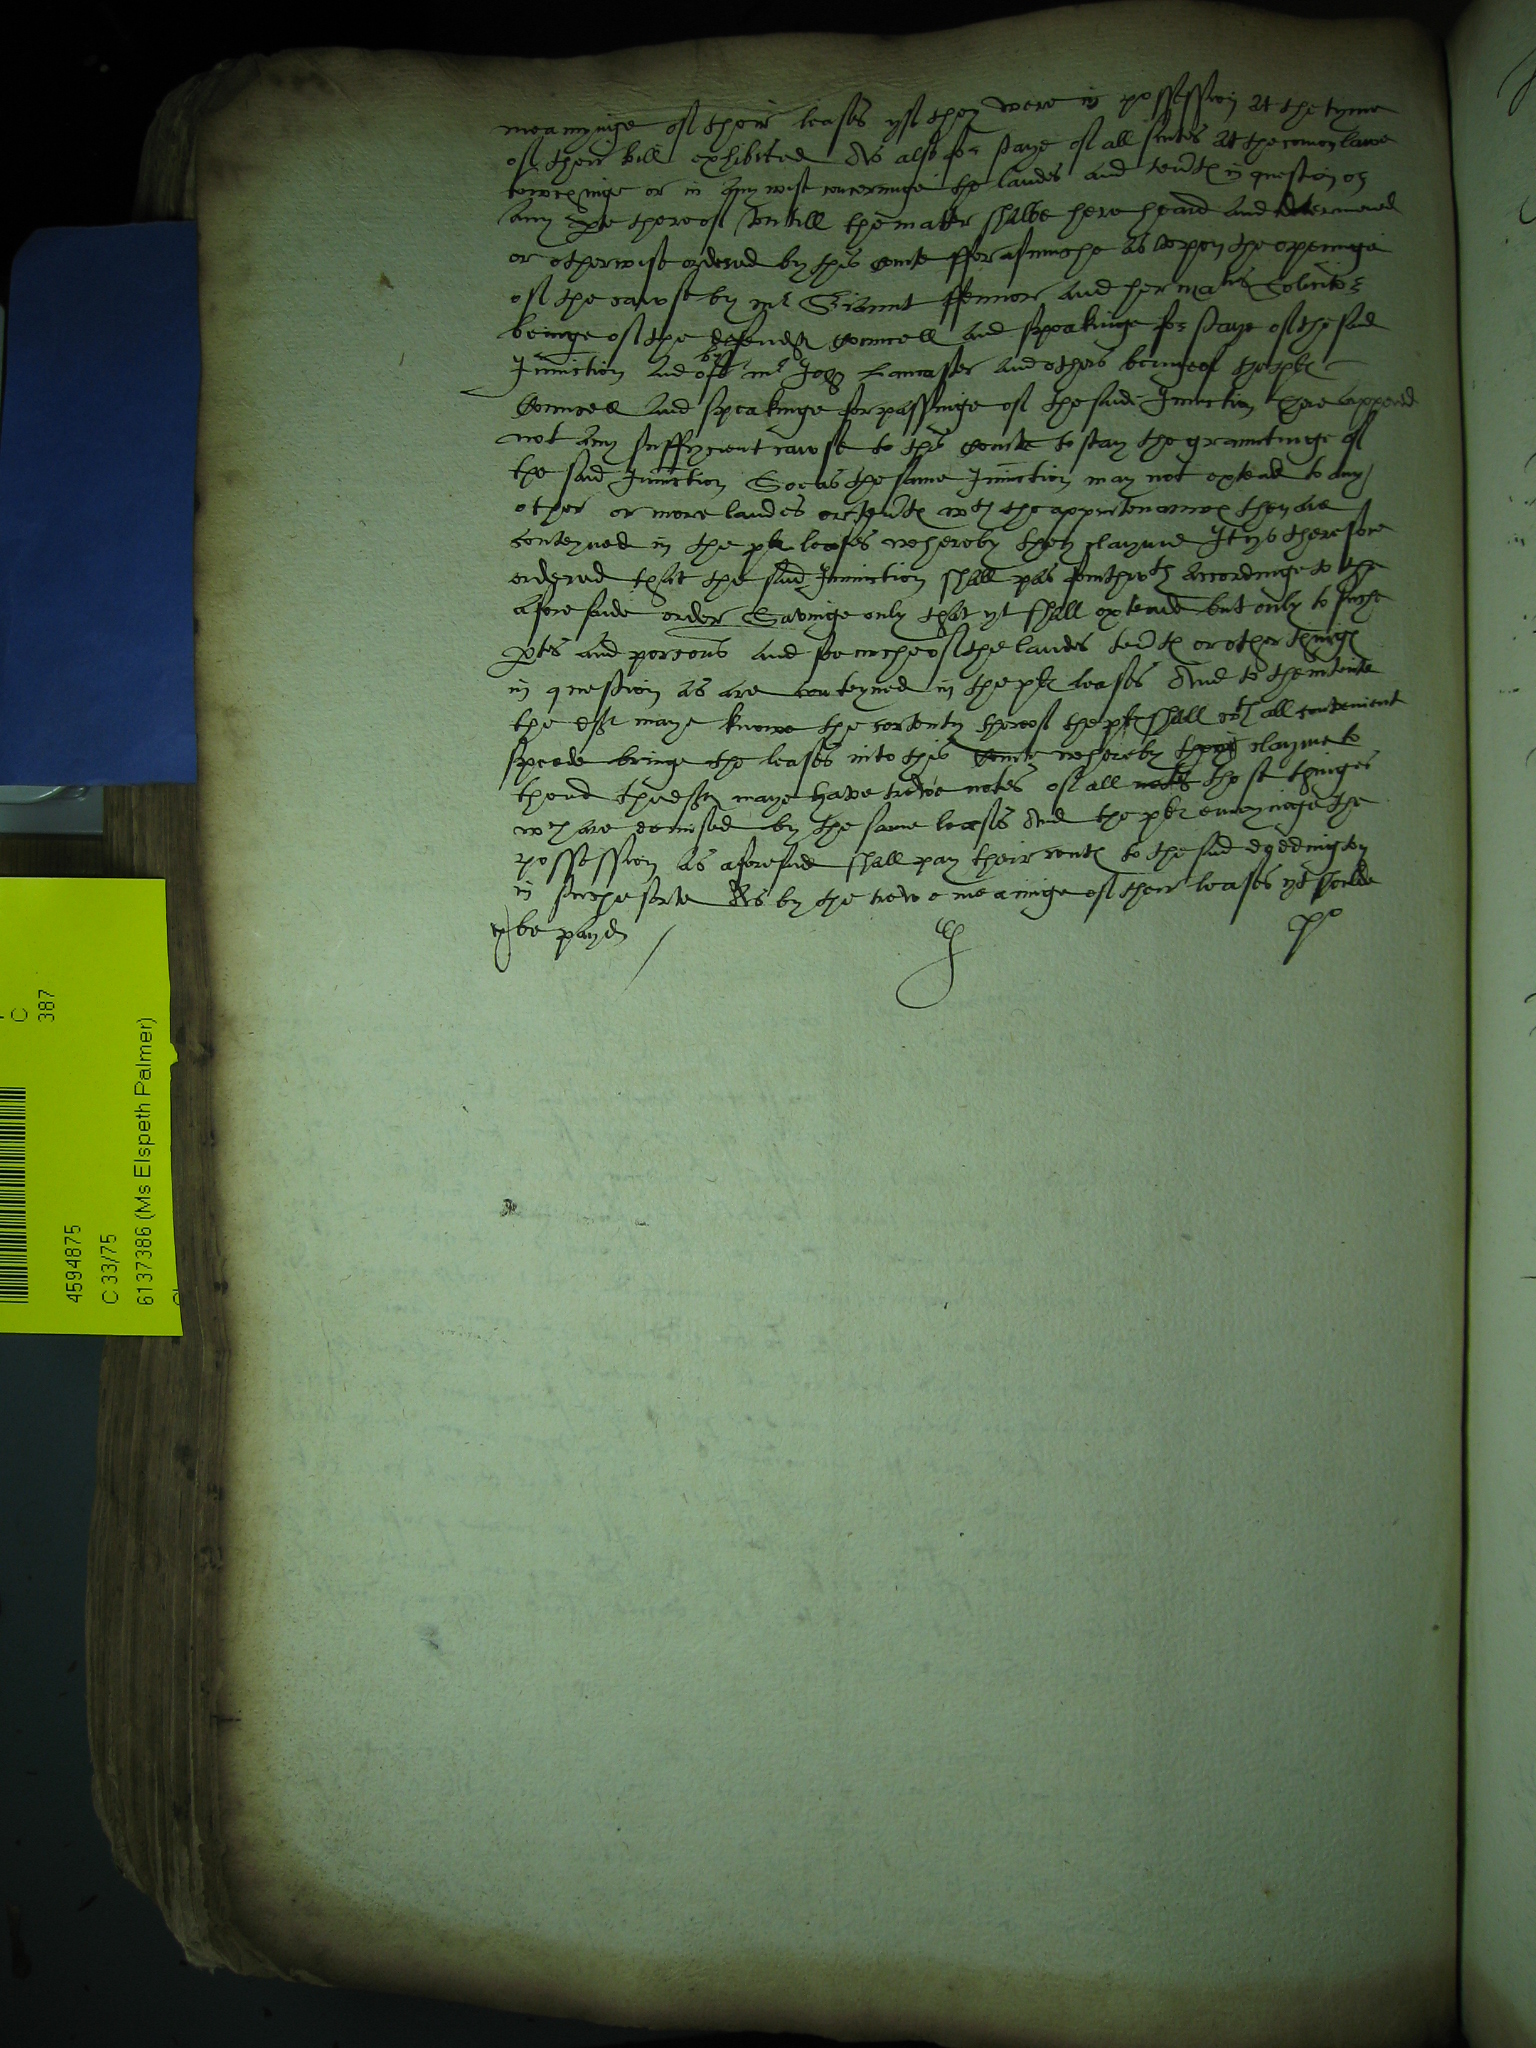 meanynge of their leases yf they were in possession at the tyme
of their bill exhibited As also for staye of all suites at the comon lawe
towchinge or in any wise concerninge the landes and tentes in question or
any pte thereof untill the matter shalbe here heard and determined
or otherwise ordered by this Courte fforasmuche as upon the openinge
of the cawse by mr Seriaunt ffennor and her maties Solicitor
beinge of the defendtes Councell and speakinge for staye of the said
Iniunction And by mr John Lancaster and others beinge of the pltes
Councell and speakinge for passinge of the saide Iniunction there appered
not any suffycient cawse to this Courte to stay the grauntinge of
the said Iniunction So as the same Iniunction may not extend to any
other or more landes or tentes wth the appurtenances then are
conteyned in the pltes leases whereby they clayme It ys therefore
ordered that the said Iniunction shall pas fourthwth accordinge to the
aforesaide order Savinge only that yt shall extende but only to suche
ptes and porcons and so muche of the landes tentes or other thinges
in question as are conteyned in the pltes leases And to thentente
the deftes maye knowe the certenty thereof the pltes shall wth all convenient
speede bringe the leases into this Courte whereby they clayme to
thend thedeftes maye have trewe notes of all those thinges
wch are demised by the same leases And the pltes enioyninge the
possession as aforesaid shall pay their rentes to the said Eyddington
in suche sorte As by the trewe meaninge of their leases yt shulde
be payd
po
4594875
C 33/75
6137386 (Ms Elspeth Palmer)
C
387